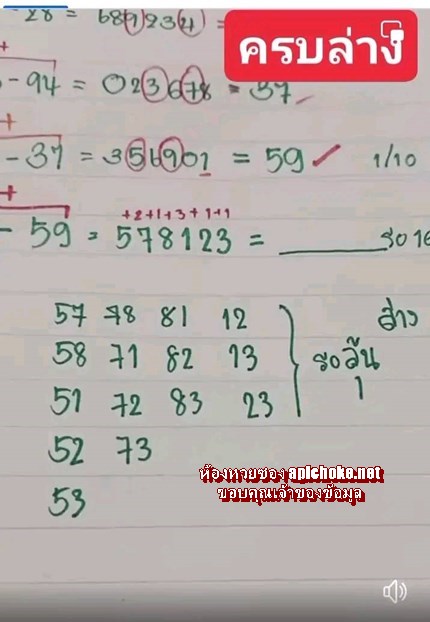 - 28 = 6891234 =
ครบล่าง
+
- 94 = 023678 = 37
+
- 37 = 356901 = 59 ✓ 1/10
+
+2+1+3+1+1
- 59 = 578123 = ______ รอ 16
57 78 81 12
58 71 82 13
51 72 83 23
52 73
53
ล่าง
รอลุ้น
1
ห้องหวยซอง apichoke.net
ขอบคุณเจ้าของข้อมูล